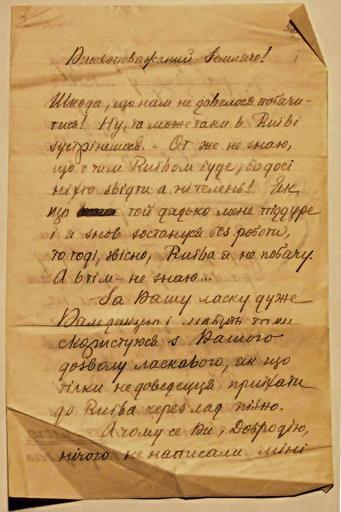 Високоповажний Земляче!
Шкода, що нам не довелося побачи-
тися! Ну, та може таки в Київі
зустрінемося. - От же не знаю,
що с тим Київом буде, бо досі
ніхто звідти а ні телень! Як
що той дядько мене піддуре
і я знов зостануся без роботи,
то тоді, звісно, Київа я не побачу.
А втім - не знаю...
За Вашу ласку дуже
Вам дякую і мабуть таки
скористуюся з Вашого
дозволу ласкавого, як що
тілки не доведецця приїхати
до Київа через лад пізно.
А чому се Ви, Добродію,
нічого не написали міні